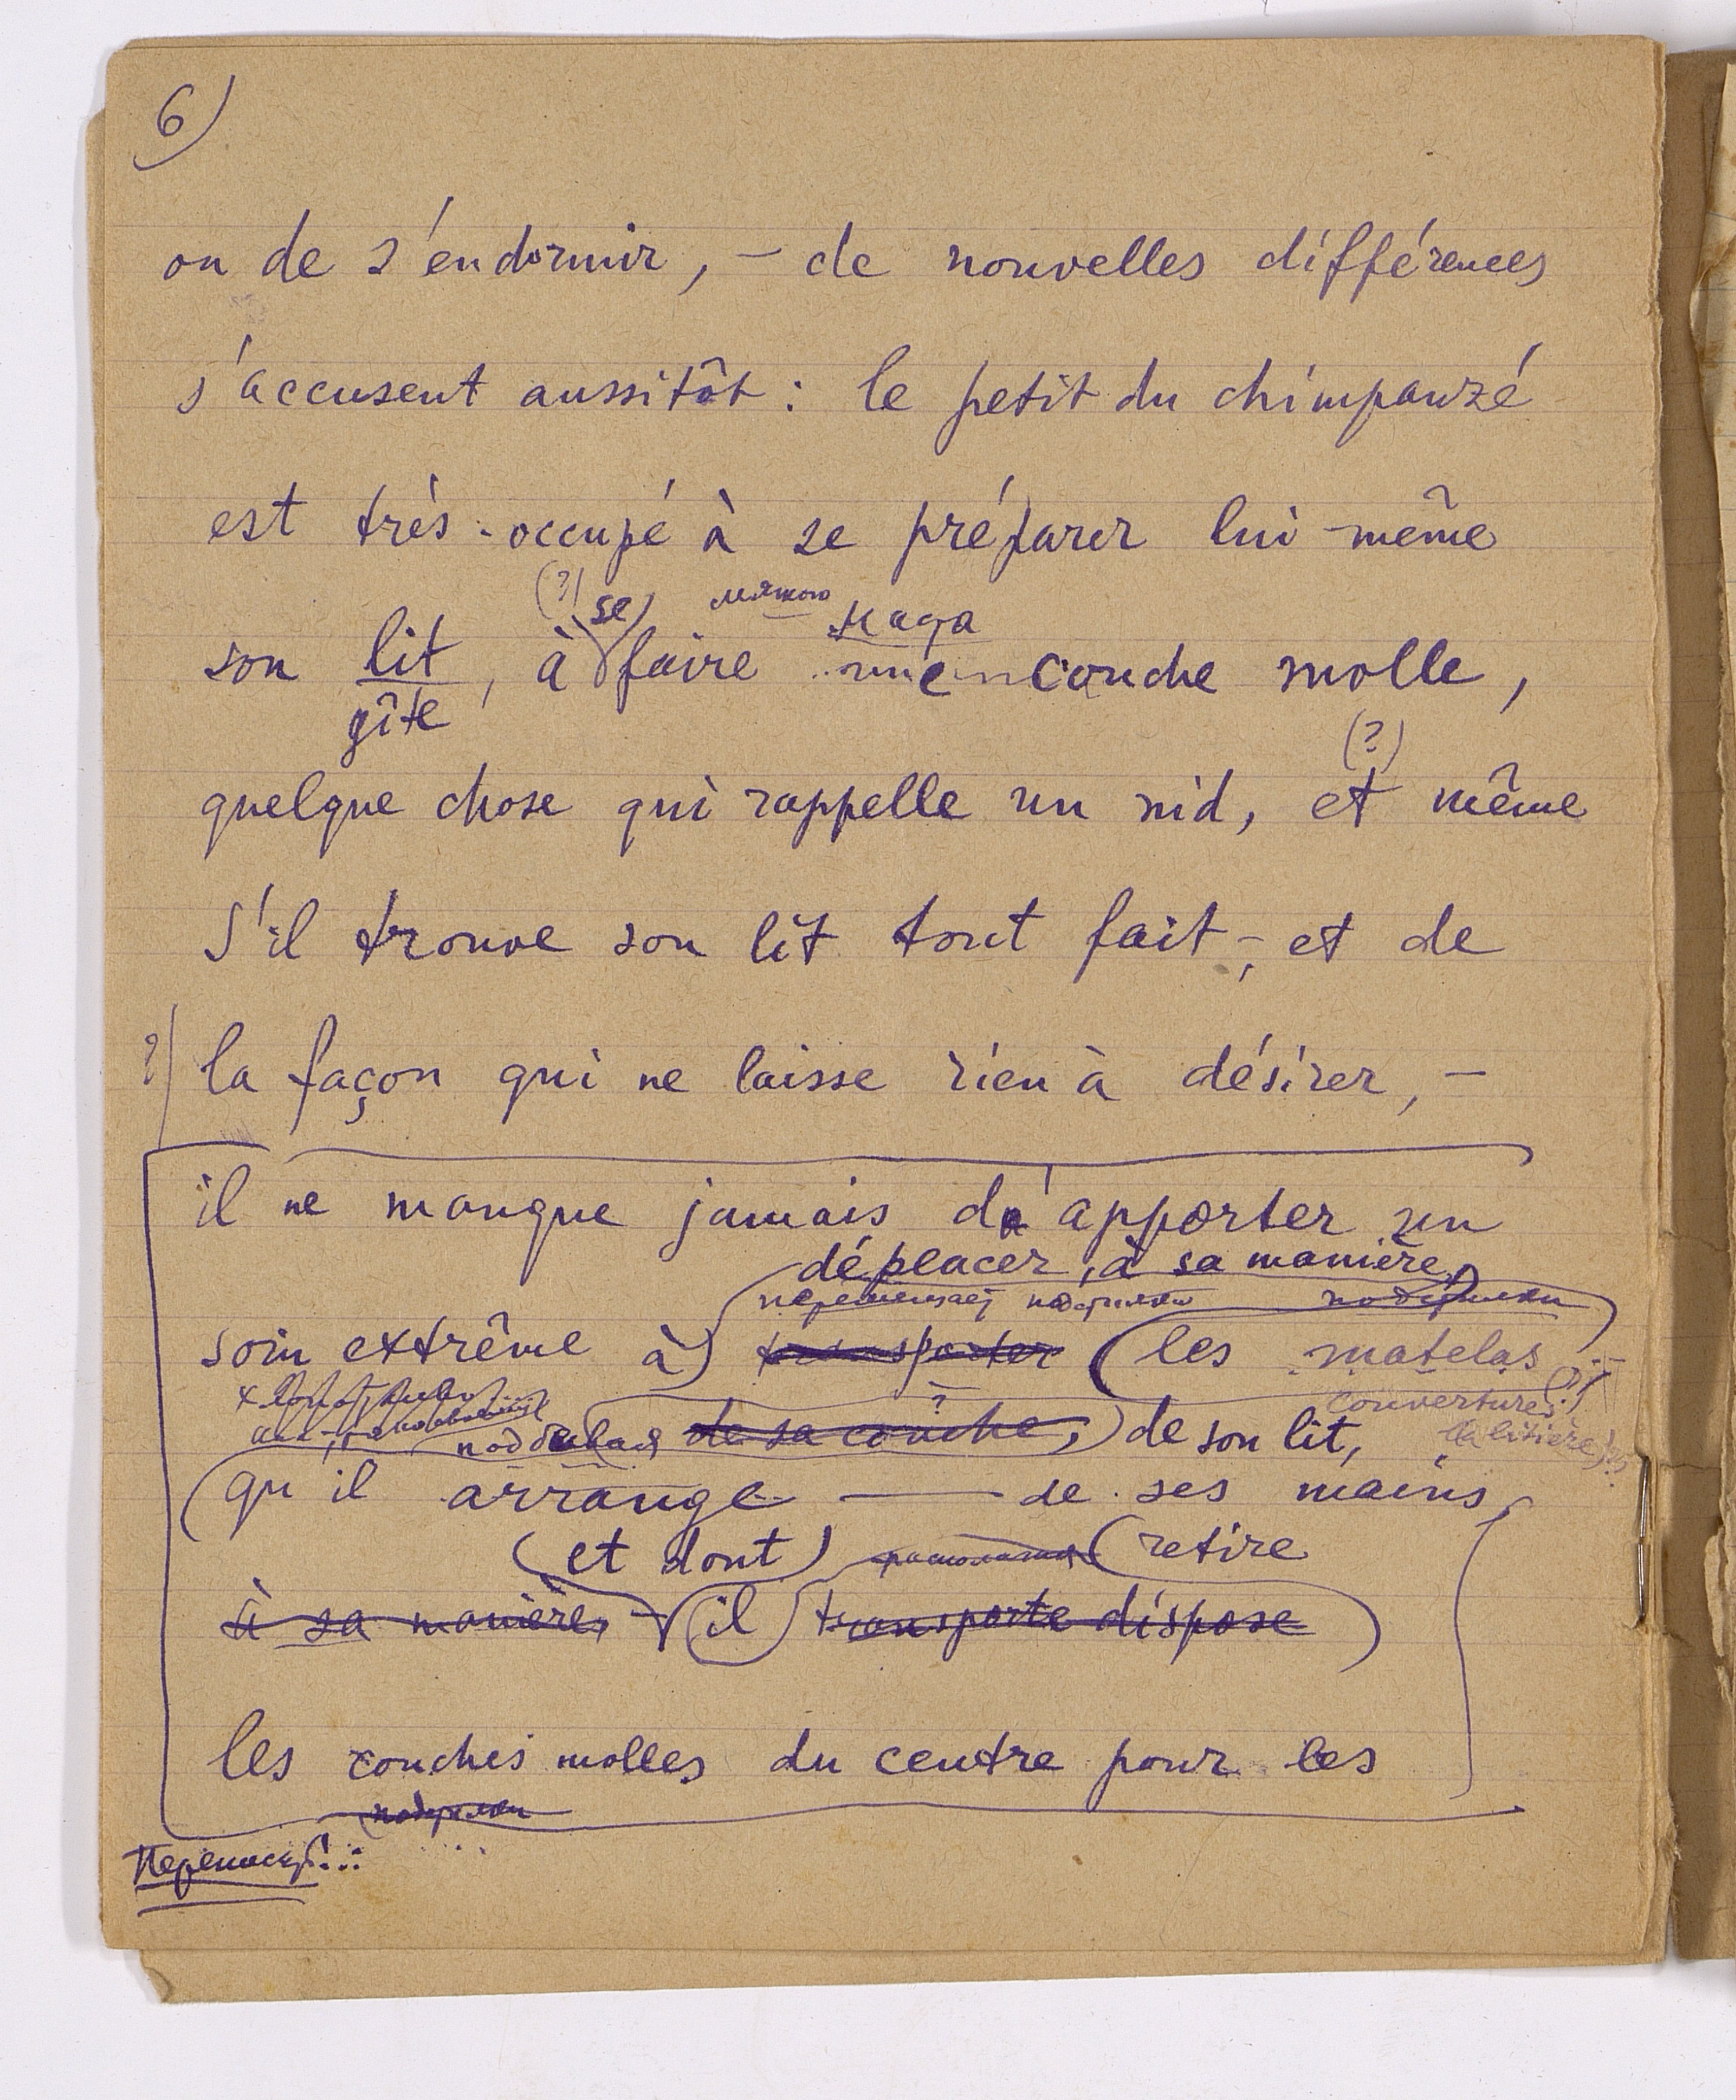 6)
ou de s'endormir, - de nouvelles différences
s'accusent aussitôt : le petit du chimpanzé
est très-occupé à se préparer lui-même
(?) se мягкого
son lit, à faire une couche molle,
gîte
(?)
quelque chose qui rappelle un nid, et même
S'il trouve son lit tout fait -, et de
?) la façon qui ne laisse rien à désirer, -
il ne manque jamais d'apporter un
déplacer, à sa manière,
soin extrême à) transporter (les matelas
couvertures
de sa couche, ) de son lit, la litière
(qu'il arrange — de ses mains
(et dont) (retire
à sa manière, (il) transporte dispose
les couches molles du centre pour les
подушки